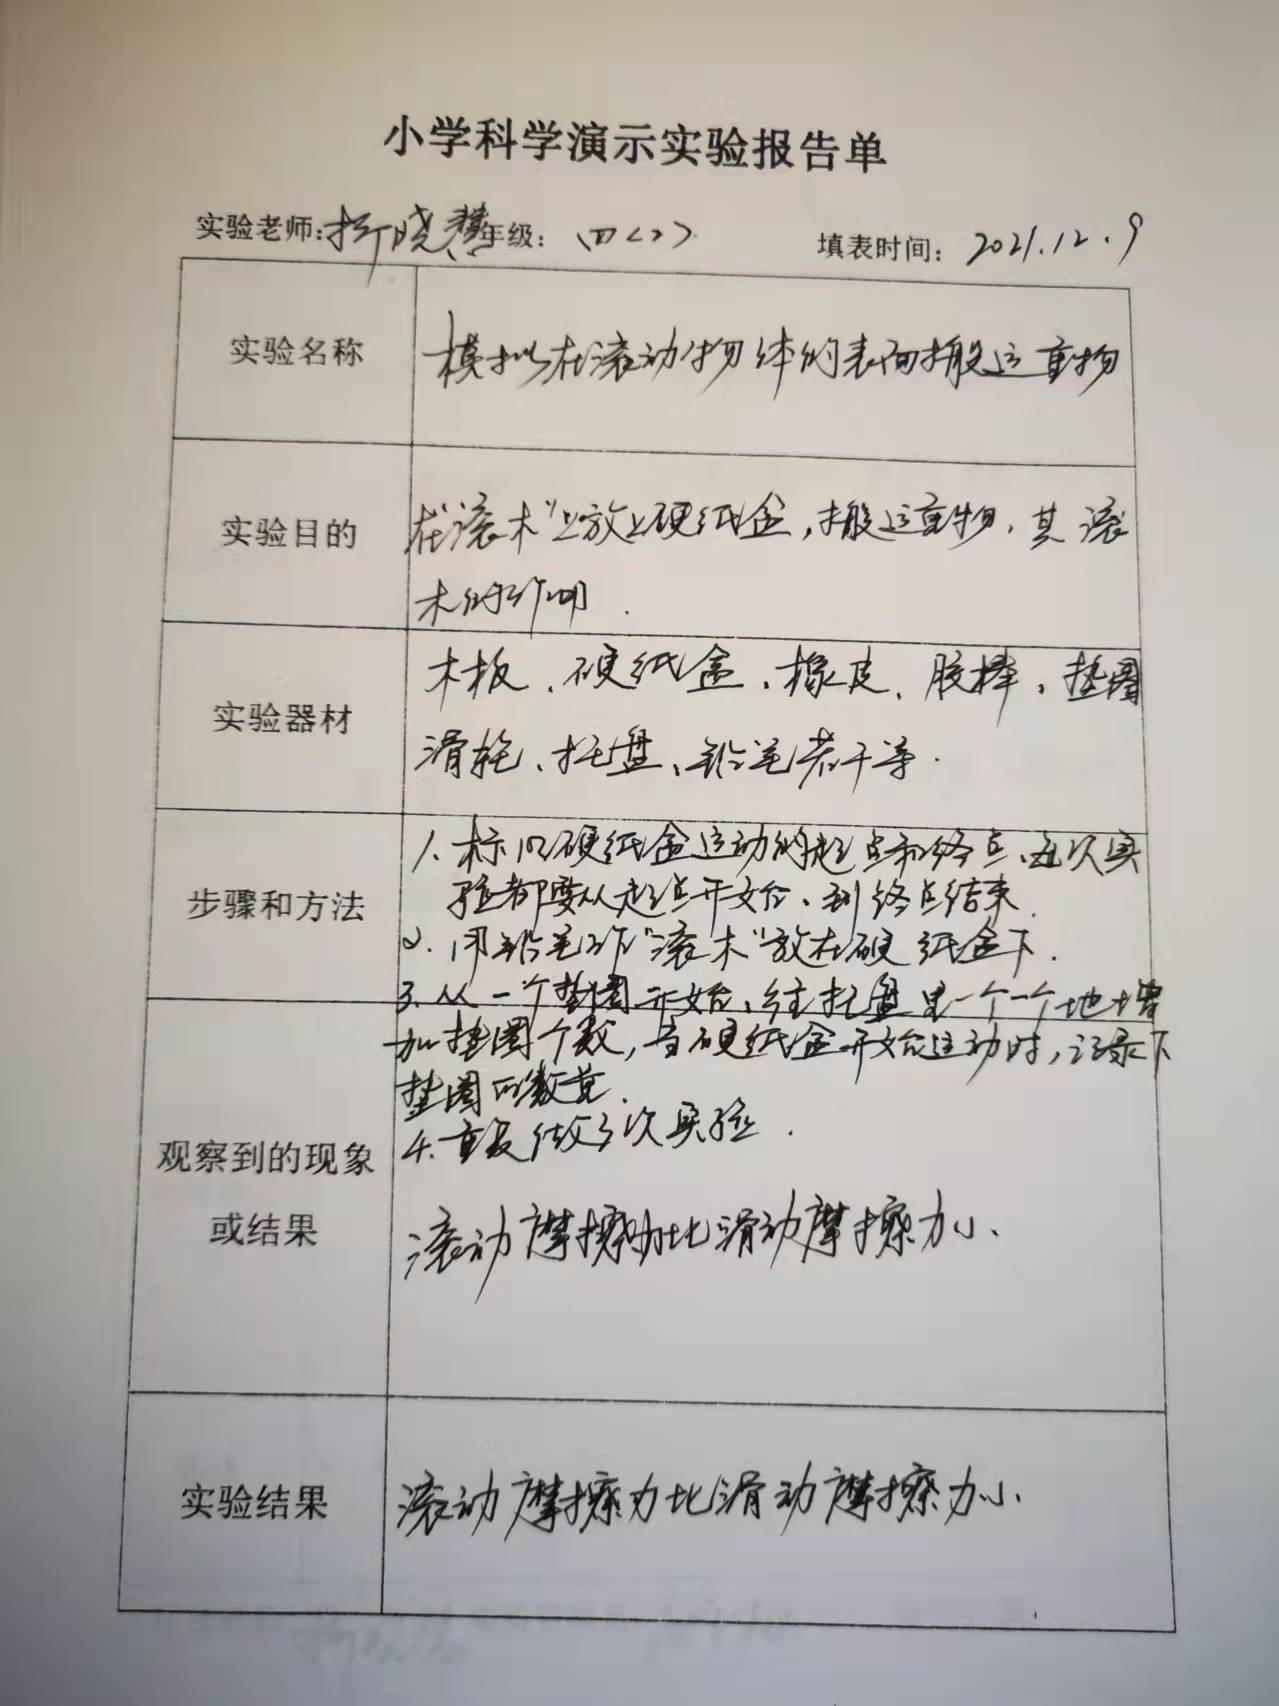 小学科学演示实验报告单
实验老师:晓慧 年级：四（2） 填表时间：2021.12.9
实验名称 模拟在滚动物体的表面搬运重物
实验目的 在“滚木”上放上硬纸盒，搬运重物，其滚
木的作用．
实验器材 木板、硬纸盒、橡皮、胶棒、垫圈
滑轮、托盘、铅笔若干等．
步骤和方法 1、标识硬纸盒运动的起点和终点、每次实
验都要从起点开始、到终点结束．
2、用铅笔作“滚木”放在硬纸盒下．
3、从一个垫圈开始、往托盘里一个一个地增
加垫圈个数，当硬纸盒开始运动时，记录下
垫圈的数量．
4、重复做3次实验．
观察到的现象
或结果 滚动摩擦力比滑动摩擦力小、
实验结果 滚动摩擦力比滑动摩擦力小、